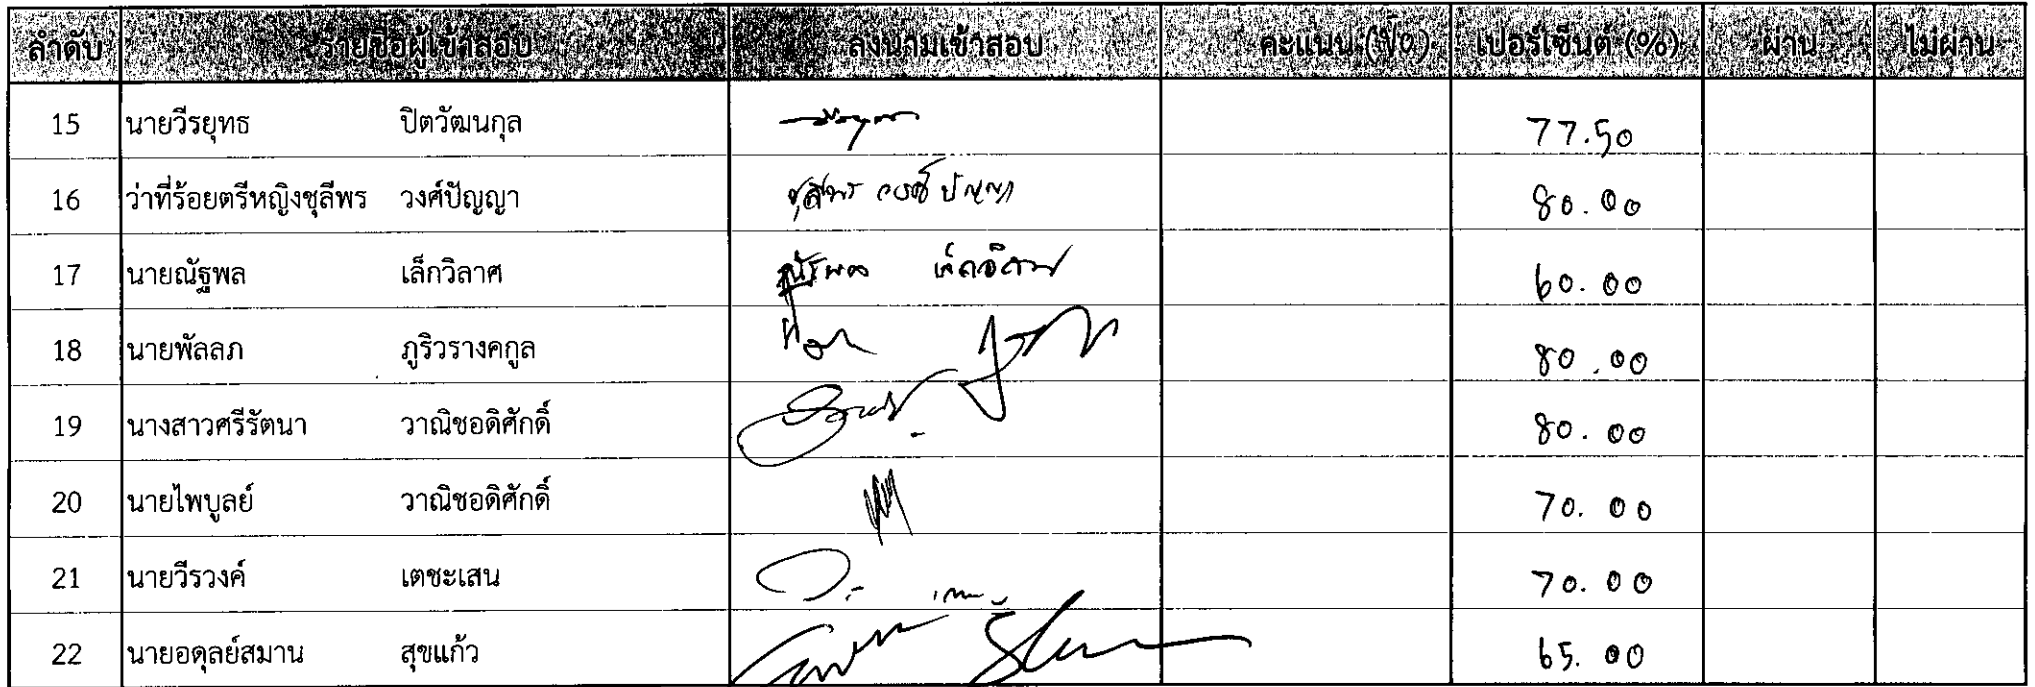 ลำดับ รายชื่อผู้เข้าสอบ ลงนามเข้าสอบ คะแนน (ข้อ) เปอร์เซ็นต์ (%) ผ่าน ไม่ผ่าน
15 นายวีรยุทธ ปิตวัฒนกุล 77.50
16 ว่าที่ร้อยตรีหญิงชุลีพร วงศ์ปัญญา ชุลีพร วงศ์ปัญญา 80.00
17 นายณัฐพล เล็กวิลาศ ณัฐพล เล็กวิลาศ 60.00
18 นายพัลลภ ภูริวรางคกูล 80.00
19 นางสาวศรีรัตนา วาณิชอดิศักดิ์ 80.00
20 นายไพบูลย์ วาณิชอดิศักดิ์ 70.00
21 นายวีรวงค์ เตชะเสน 70.00
22 นายอดุลย์สมาน สุขแก้ว 65.00